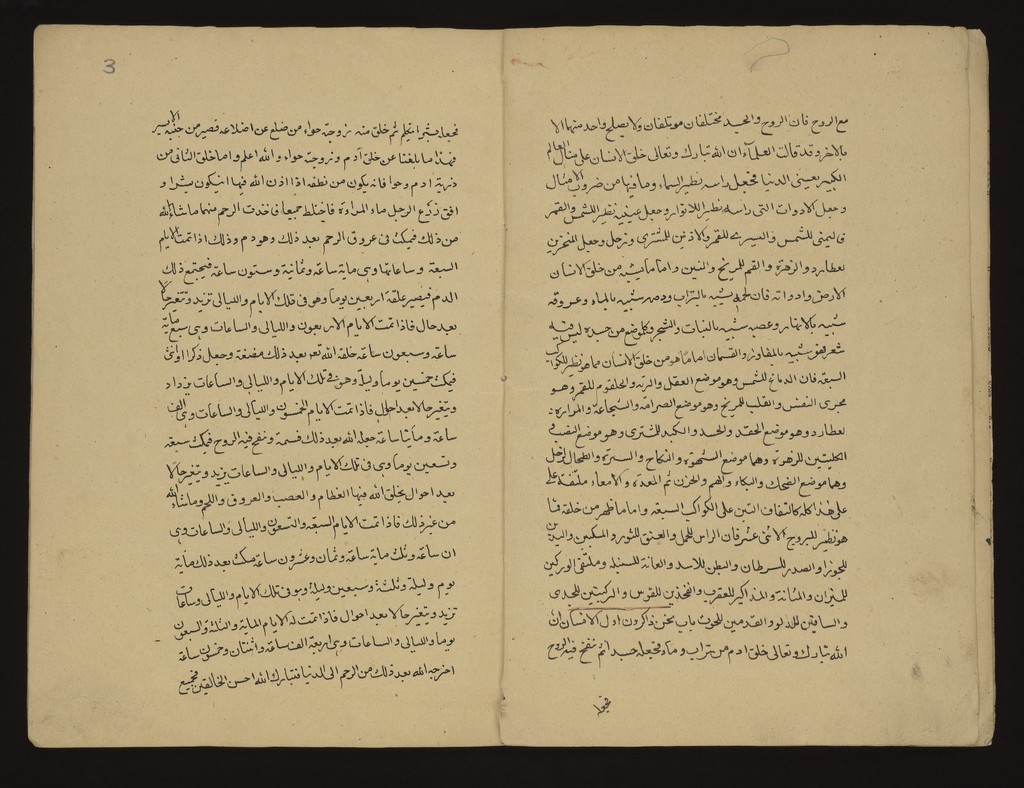 مع الروح فان الروح والجسد مختلفان موتلفان ولا يصلح واحد منهما الا
بالاخر وقد قالت العلمآء ان الله تبارك وتعالى خلق الانسان على مثال العالم
الكبير يعنى الدنيا فجعل راسه نظير السماء وما فيها من ضروب الامثال
وجعل الادوات التى راسه نظير الانوار وجعل عينيه نظير الشمس والقمر
فاليمنى للشمس واليسرى للقمر والاذنين للمشترى وزحل وجعل المنخرين
لعطارد والزهرة والفم للمريخ والتنين واما ما يشبه من خلق الانسان
الارض وادواته فان لحمه يشبه بالتراب ودمه شبيه بالماء وعروقه
شبيه بالانهار وعصبه شبيه بالنبات والشجر وكل موضع من جسده ليس فيه
شعر فهو شبيه بالمفاوز والقسمان اما ما هو من خلق الانسان مما هو نظير للكواكب
السبعة فان الدماغ للشمس وهو موضع العقل والريه والحلقوم للقمر وهو
مجرى النفس والقلب للمريخ وهو موضع الصرامة والشجاعة والمرارة
لعطارد وهو موضع الحقد والحسد والكبد للمشترى وهو موضع النفس و
الكليتين للزهرة وهما موضع الشهوة والنكاح والسرة والطحال لزحل
وهما موضع الضحك والبكاء والهم والحزن ثم المعدة والامعاء ملتفة على
على هذا كله كالتفاف التنين على الكواكب السبعة واما ما ظهر من خلقه فما
هو نظير للبروج الاثنى عشر فان الراس للحمل والعنق للثور والمنكبين واليدين
للجوزا والصدر للسرطان والبطن للاسد والعانة للسنبلة وملتقى الوركين
للميزان والمثانة والمذاكير للعقرب والفخذين للقوس والركبتين للجدى
والساقين للدلو والقدمين للحوت باب نحن ذاكرون اول الانسان ان
الله تبارك وتعالى خلق ادم من تراب وماء فجعله جسدا ثم نفخ فيه الروح
فجعله
3
فجعله بشرا يتكلم ثم خلق منه زوجته حواء من ضلع من اضلاعه قصير من جنبه الايسر
فهذا ما بلغنا عن خلق آدم وزوجته حواء والله اعلم واما خلق الثانى من
ذرية ادم وحوا فانه يكون من نطفه اذا اذن الله فيها ان يكون بشرا و
افق زرع الرجل ماء المراءة فاختلط جميعا فاخذت الرحم منهما ما شاء الله
من ذلك فيمكث فى عروق الرحم بعد ذلك وهو دم وذلك اذا تمت الايام
السبعة وساعاتها وهى ماية ساعة وثمانية وستون ساعة فيجتمع ذلك
الدم فيصير علقة اربعين يوما وهى فى تلك الايام والليالى تزيد وتتغير حالا
بعد حال فاذا تمت الايام الاربعون والليالى والساعات وهى تسع ماية
ساعة وسبعون ساعة خلقه الله تعم بعد ذلك مضغة وجعل ذكرا او انثى
فيمكث خمسين يوما وليلة وهو فى تلك الايام والليالى والساعات يزداد
ويتغير حالا بعد احوال فاذا تمت الايام الخمسون والليالى والساعات وهى الف
ساعة ومأيتا ساعة جعله الله بعد ذلك قسمة ونفخ فيه الروح فيمكث سبعة
وتسعين يوما وهى فى تلك الايام والليالى والساعات يزيد ويتغير حالا
بعد احوال يخلق الله فيها العظام والعصب والعروق واللحم وما شاء الله
من غير ذلك فاذا تمت الايام السبعة والتسعون والليالى والساعات وهى
ان ساعة وثلث ماية ساعة وثمان وعشرون ساعة مكث بعد ذلك مأية
يوم وليلة وثلثة وسبعين وليلة وهو فى تلك الايام والليالى وساعات
تزيد ويتغير حالا بعد احوال فاذا تمت له الايام الماية والثلثة والسبعون
يوما والليالى والساعات وهى اربعة الف ساعة واثنتان وخمسون ساعة
اخرجه الله بعد ذلك من الرحم الى الدنيا فتبارك الله احسن الخالقين فجميع